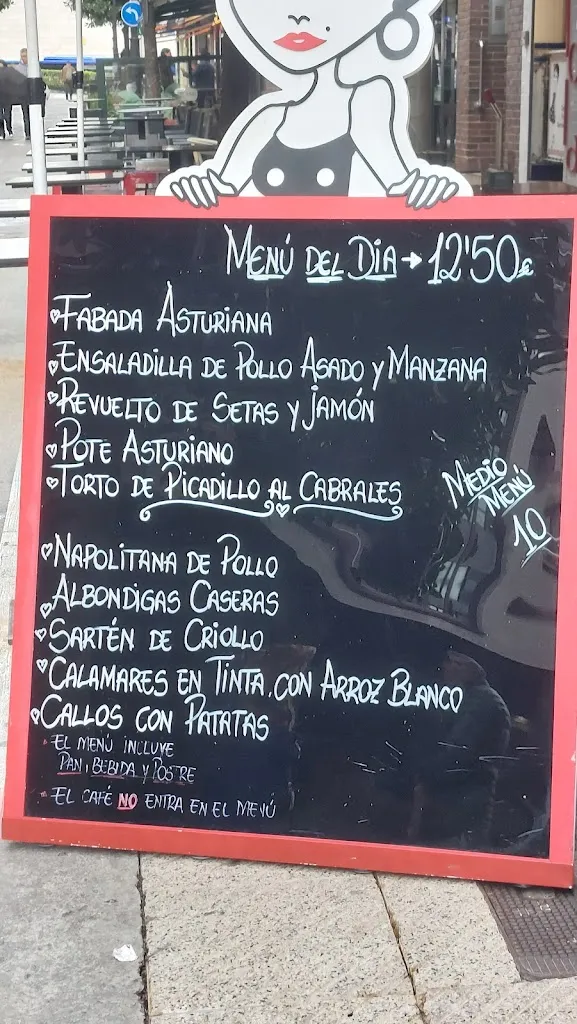 MENÚ DEL DIA → 12'50€
♡FABADA ASTURIANA
♡ENSALADILLA DE POLLO ASADO Y MANZANA
♡REVUELTO DE SETAS Y JAMÓN
♡POTE ASTURIANO
♡TORTO DE PICADILLO AL CABRALES
MEDIO
MENÚ
10
♡NAPOLITANA DE POLLO
♡ALBONDIGAS CASERAS
♡SARTÉN DE CRIOLLO
♡CALAMARES EN TINTA, CON ARROZ BLANCO
♡CALLOS CON PATATAS
* EL MENÚ INCLUYE
PAN, BEBIDA Y POSTRE
* EL CAFÉ NO ENTRA EN EL MENÚ